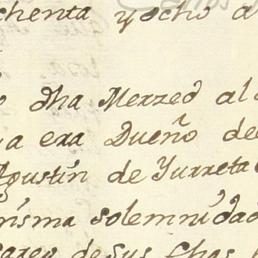 chenta y ocho a
dha Merzed al
a era Dueño de
Agustin de Yurreta
risma solemnidad
de sus